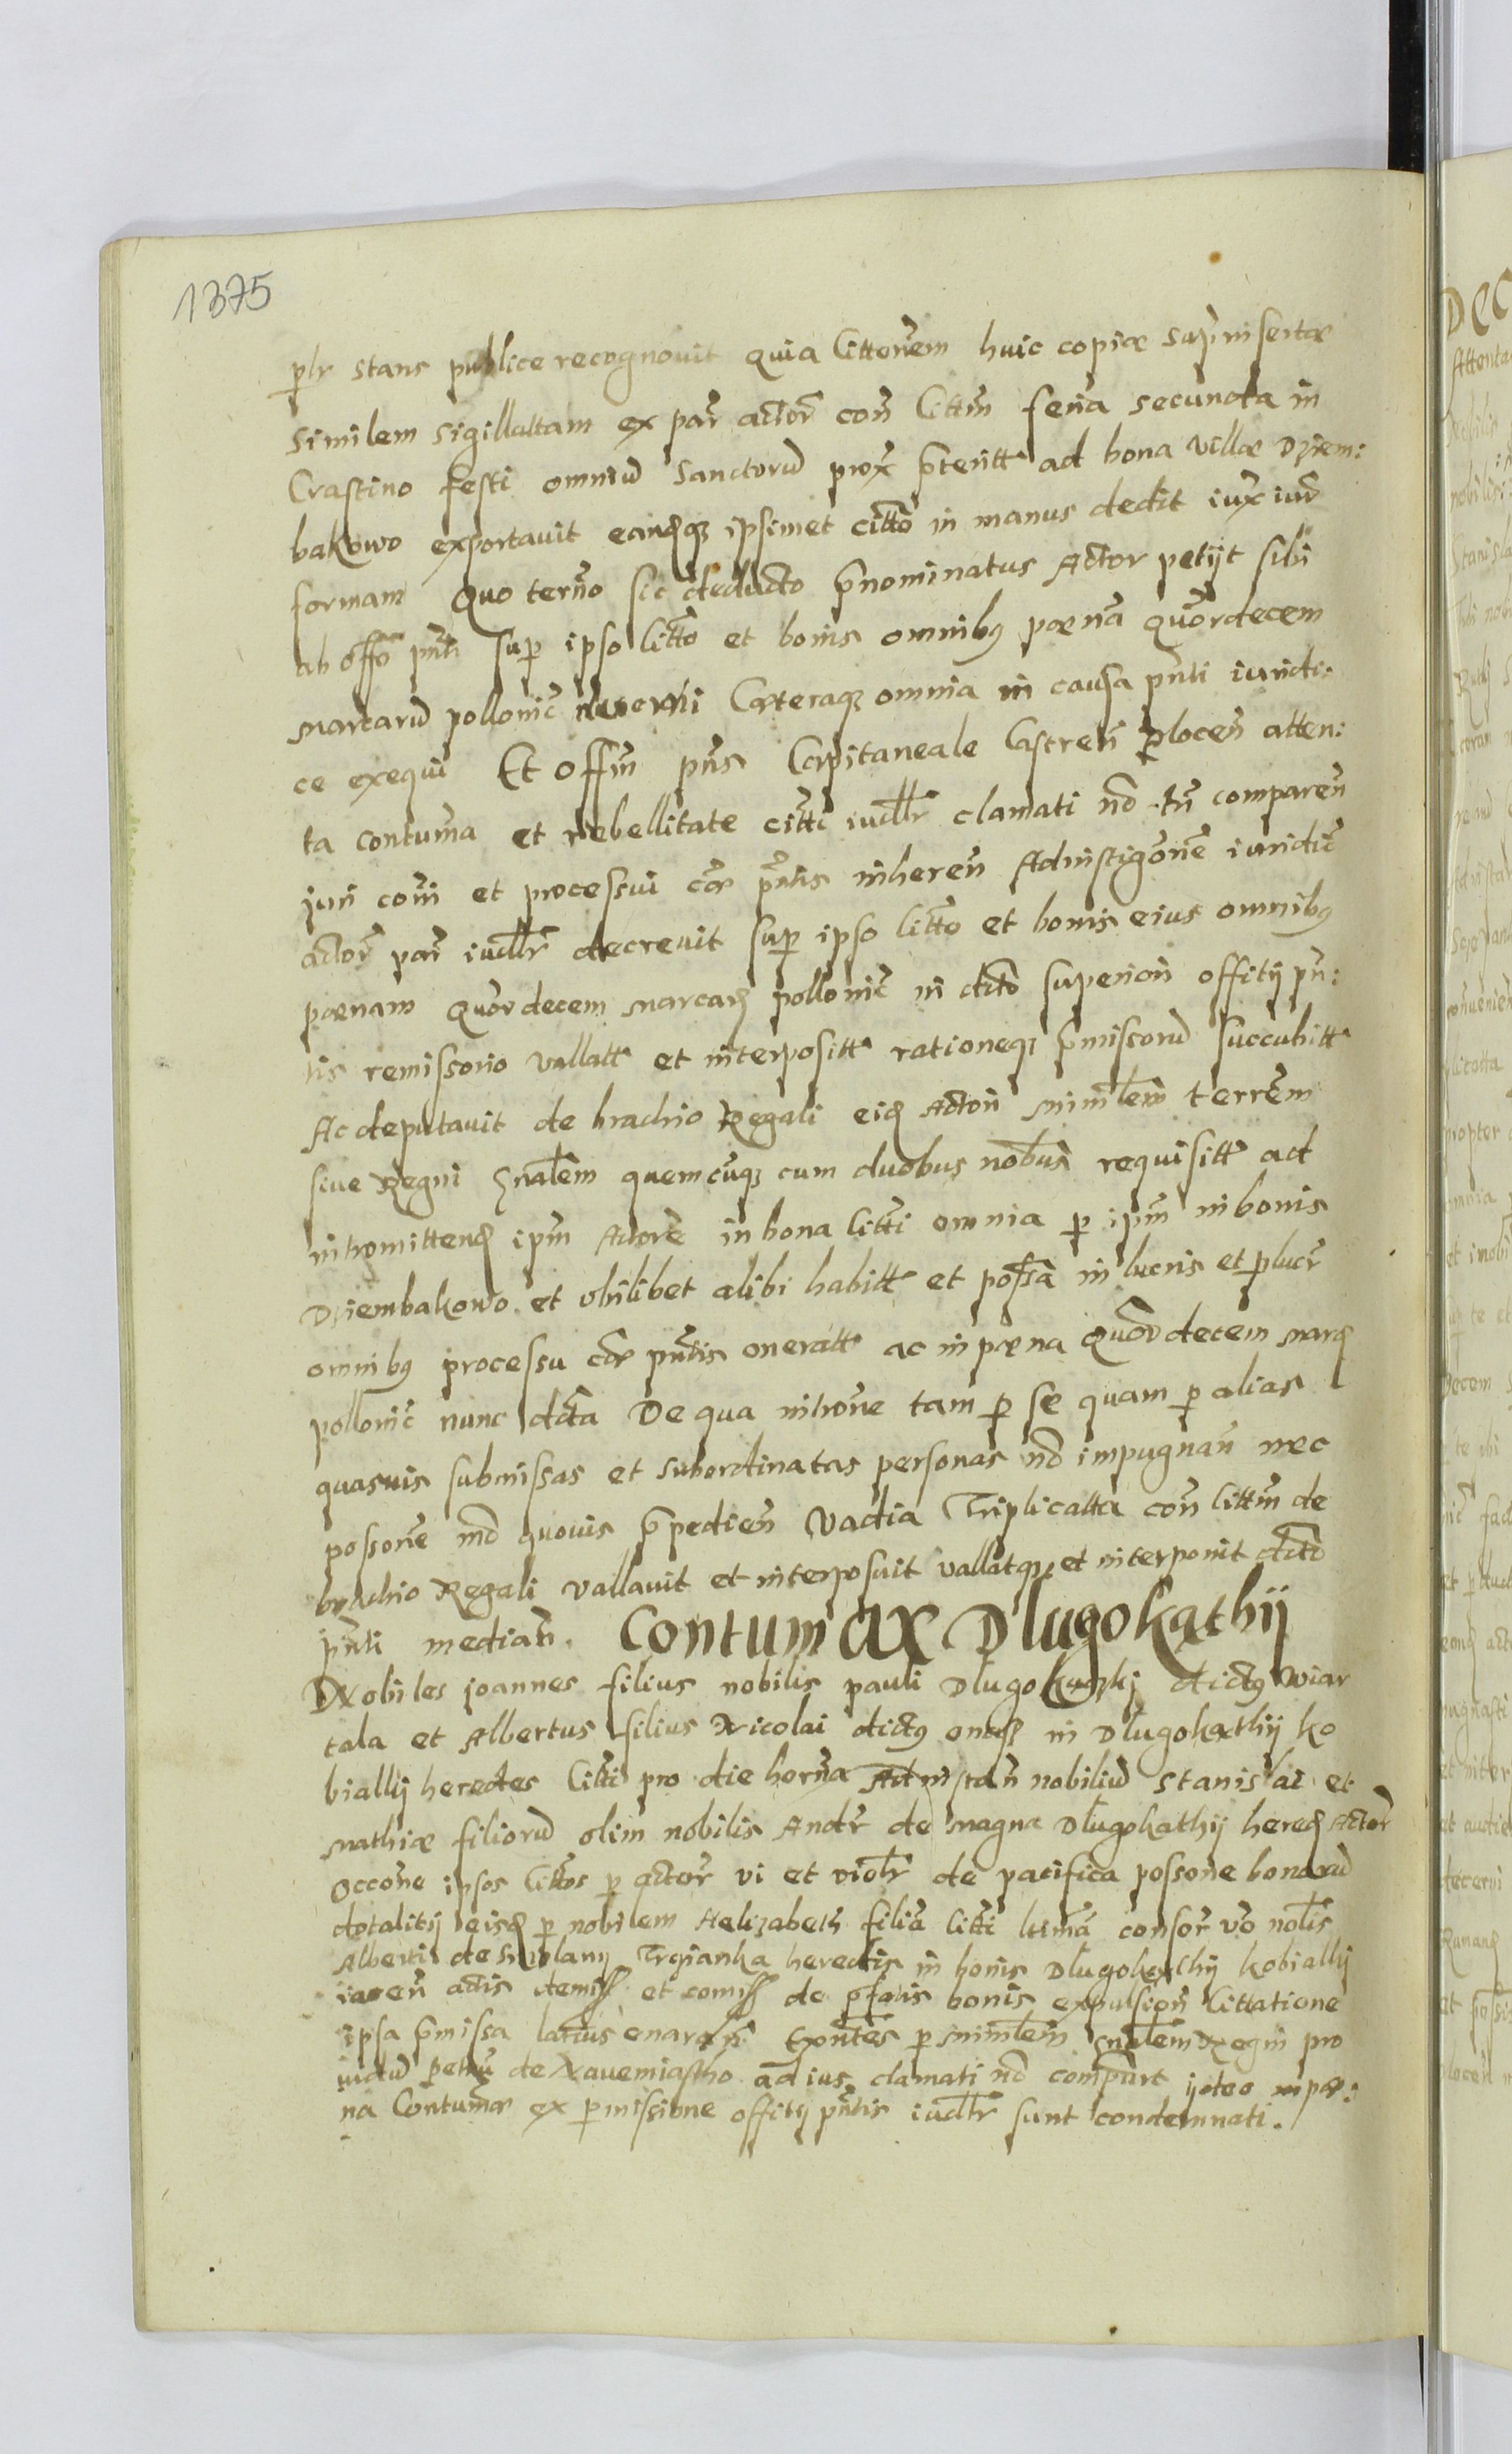 1375
plr stans publice recognovit quia littonem huic copiæ sup insertæ
similem sigillattam ex par actor con littm feria secunda in
Crastino festi omniu Sanctoru prox pteritt ad bona villæ Dziem:
bakowo exportavit eandq ipsimet citto in manus dedit iux iur
formam Quo termo sic deducto pnominatus Actor petijt sibi
ab offo pnti sup ipso litto et bonis omnibq pœna quordecem
marcaru pollonic decerni Cæteraq omnia in causa pnti iuridi:
ce exequi Et Offm pns Capitaneale Castren plocen atten:
ta contuma et rebellitate citti iudlr clamati no tn comparen
juri comi et processui cor pntis inheren Adinstigone iuridic
actor par iudlr decrevit sup ipso litto et bonis eius omnibq
pœnam quordecem marcar pollonic in dcto superiori offitij pn:
tis remissorio vallatt et interpositt rationeq pmissoru succubitt
Ac deputavit de brachio Regali eid Actori minrlem terrem
sive Regni gnalem quemcuq cum duobus nobus requisitt ad
intromittend ipm Actore in bona litti omnia p ipm in bonis
Dziembakowo et ubilibet alibi habitt et possa in lucris et plucr
omnibq processu cor pntis oneratt ac in pœna quordecem marc
pollonic nunc dcta De qua introne tam p se quam p alias
quasvis submissas et subordinatas personas no impugnan nec
possone mo quovis ppedien Vadia Triplicatta con littm de
brachio Regali vallavit et interposuit vallatq et interponit dcto
pnti median. Contumax Dlugokathij
Nobiles joannes filius nobilis pauli Dlugokaczkj dictq wiar
tala et Albertus filius Nicolai dictq in Dlugokathij ko
biallij heredes litti pro die horna Ad instan nobiliu Stanislai et
Mathiæ filioru olim nobilis Andr de magna Dlugokathij hered Actor
Occone ipsos littos p actor vi et violr de pacifica possone bonoru
dotalitij eisd p nobilem Helizabeth filia litti ltima consor vo nolis
Alberti de Trojanka heredis in bonis Dlugokathij kobiallij
iacen actis demiss et comiss de pfatis bonis expulsion littatione
ipsa pmissa latius enarran p minrlem gnalem Regni pro
vidu petru de Navemiastho ad ius clamati no comparnt ijdeo in pœ:
na Contumæ ex pmissione offitij pntis iudlr sunt condemnati.